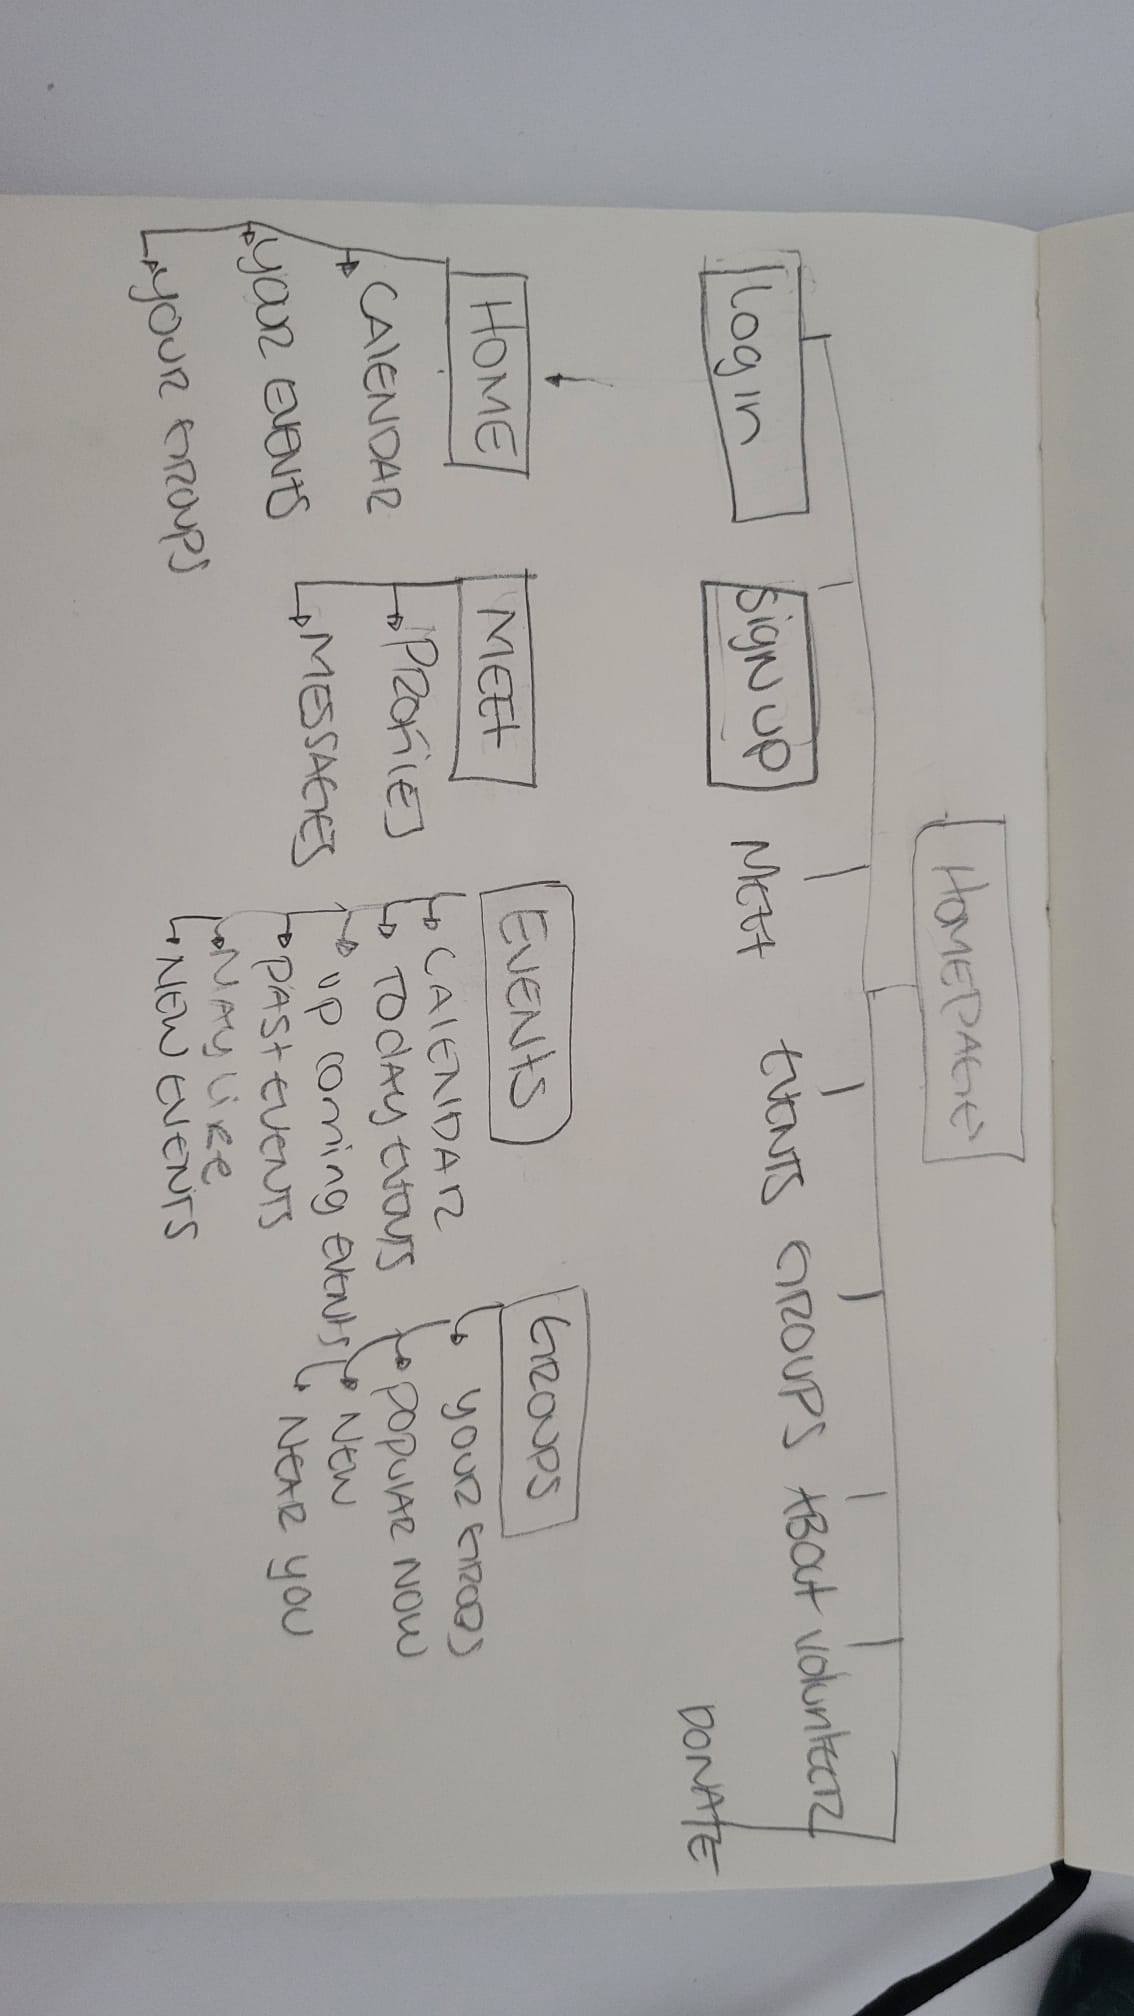 HOMEPAGE
Log in
SIGN UP
MEET
EVENTS
GROUPS
ABOUT
VOLUNTEER
DONATE
HOME
CALENDAR
YOUR EVENTS
YOUR GROUPS
MEET
PROFILES
MESSAGES
EVENTS
CALENDAR
TODAY EVENTS
UP COMING EVENTS
PAST EVENTS
MAY LIKE
NEW EVENTS
GROUPS
YOUR GROUPS
POPULAR NOW
NEW
NEAR YOU